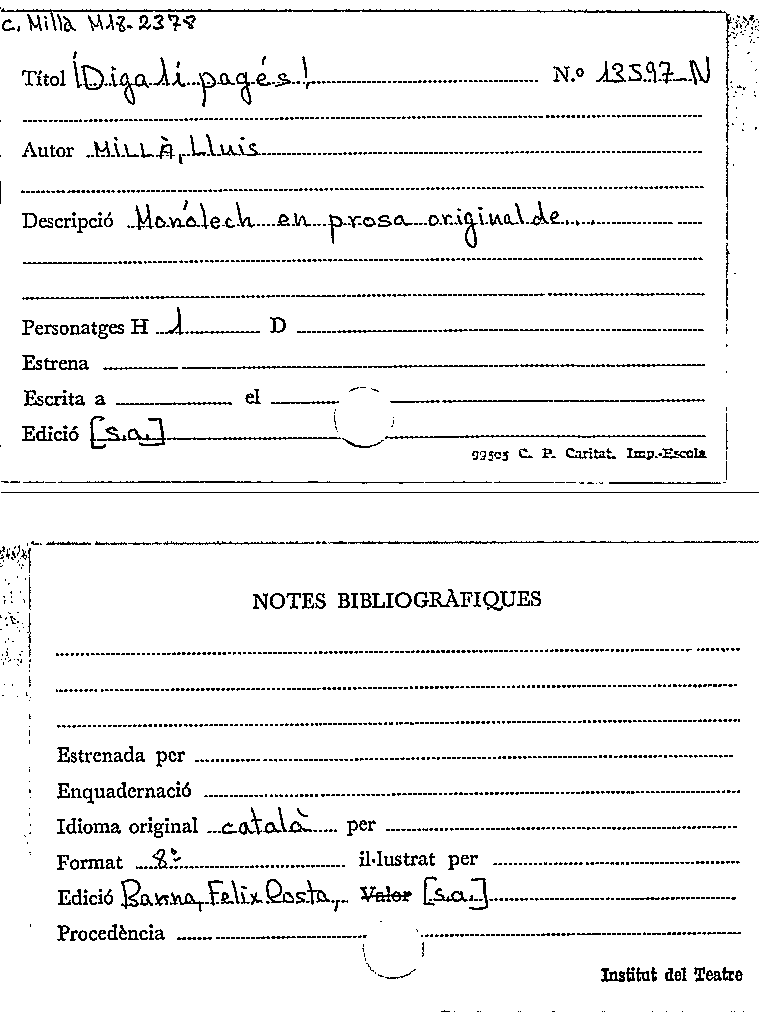 C. Millà M18-2378
Títol ¡Diga li pagés! N.º 13597-N
Autor MILLÀ, Lluis
Descripció Monólech en prosa original de...
Personatges H 1 D
Estrena
Escrita a el
Edició [s.a.]
99505 C. P. Caritat. Imp.-Escola
NOTES BIBLIOGRÀFIQUES
Estrenada per
Enquadernació
Idioma original català per
Format 8º il·lustrat per
Edició Barna, Felix Costa, Valor [s.a.]
Procedència
Institut del Teatre